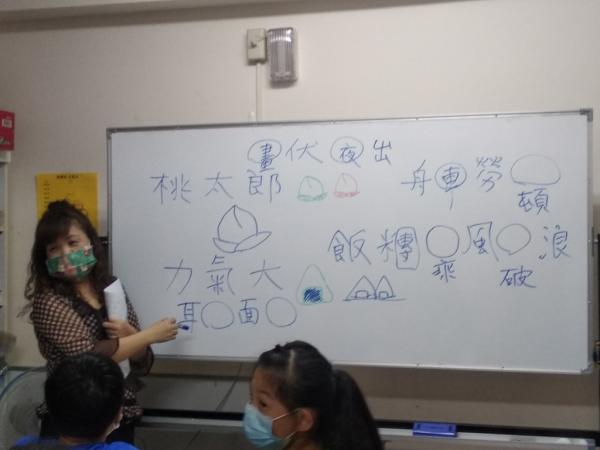 畫伏夜出
桃太郎
舟車勞○
頓
飯糰○風○浪
乘 破
力氣大
耳○面○